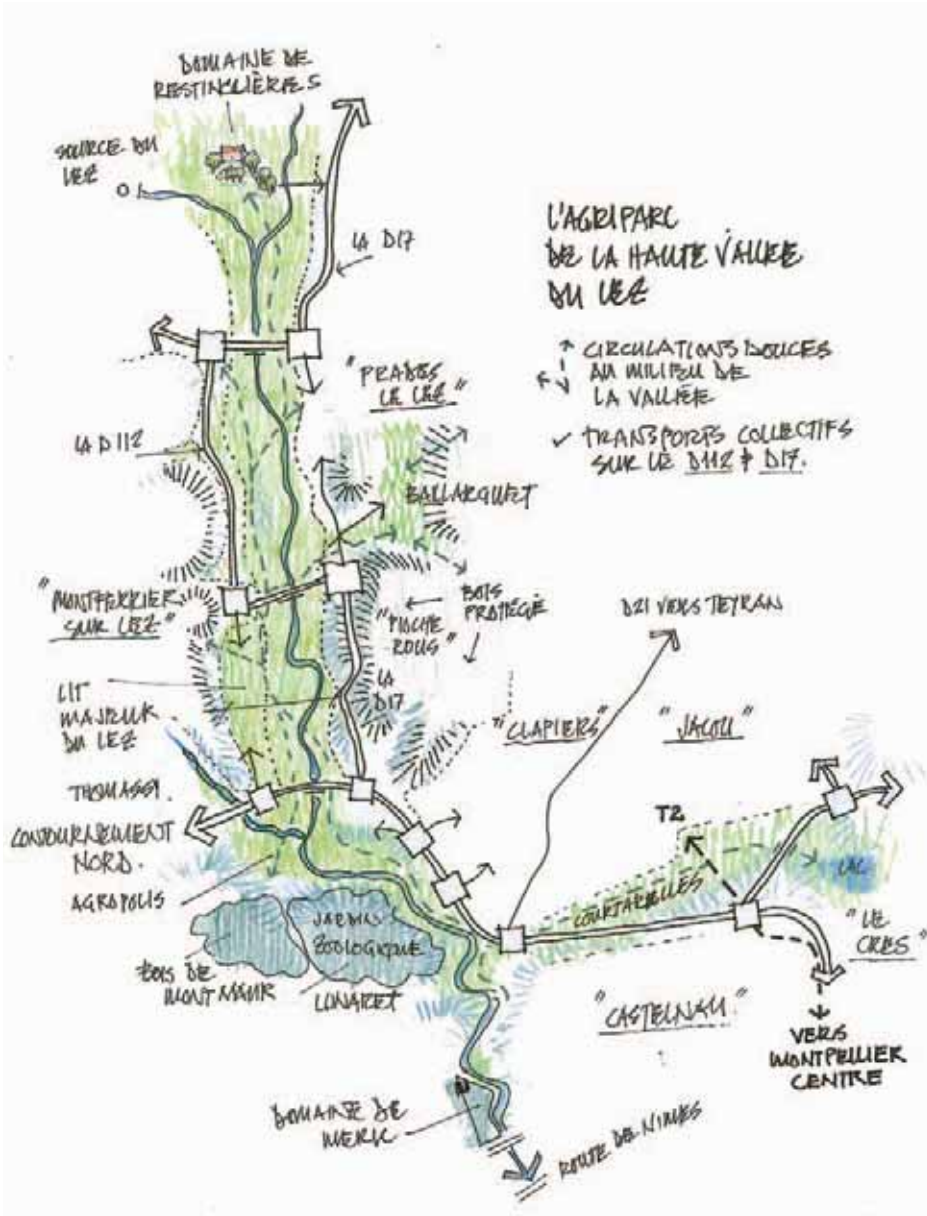 DOMAINE DE
RESTINCLIÈRES
SOURCE DU
LEZ
LA D17
L'AGRIPARC
DE LA HAUTE VALLEE
DU LEZ
CIRCULATIONS DOUCES
AU MILIEU DE
LA VALLÉE
TRANSPORTS COLLECTIFS
SUR LE D112 & D17.
"PRADES
LE LEZ"
LA D112
BAILLARGUET
"MONTFERRIER
SUR LEZ"
BOIS
PROTÉGÉ
"PIOCHE
ROUS"
D21 VERS TEYRAN
LIT
MAJEUR
DU LEZ
LA
D17
"CLAPIERS"
"JACOU"
THOMASSY.
CONTOURNEMENT
NORD.
T2
AGROPOLIS
COURTARELLES
LAC
JARDIN
ZOOLOGIQUE
"LE
CRES"
BOIS DE
MONTMAUR
LUNARET
"CASTELNAU"
VERS
MONTPELLIER
CENTRE
DOMAINE DE
MERIC
ROUTE DE NIMES